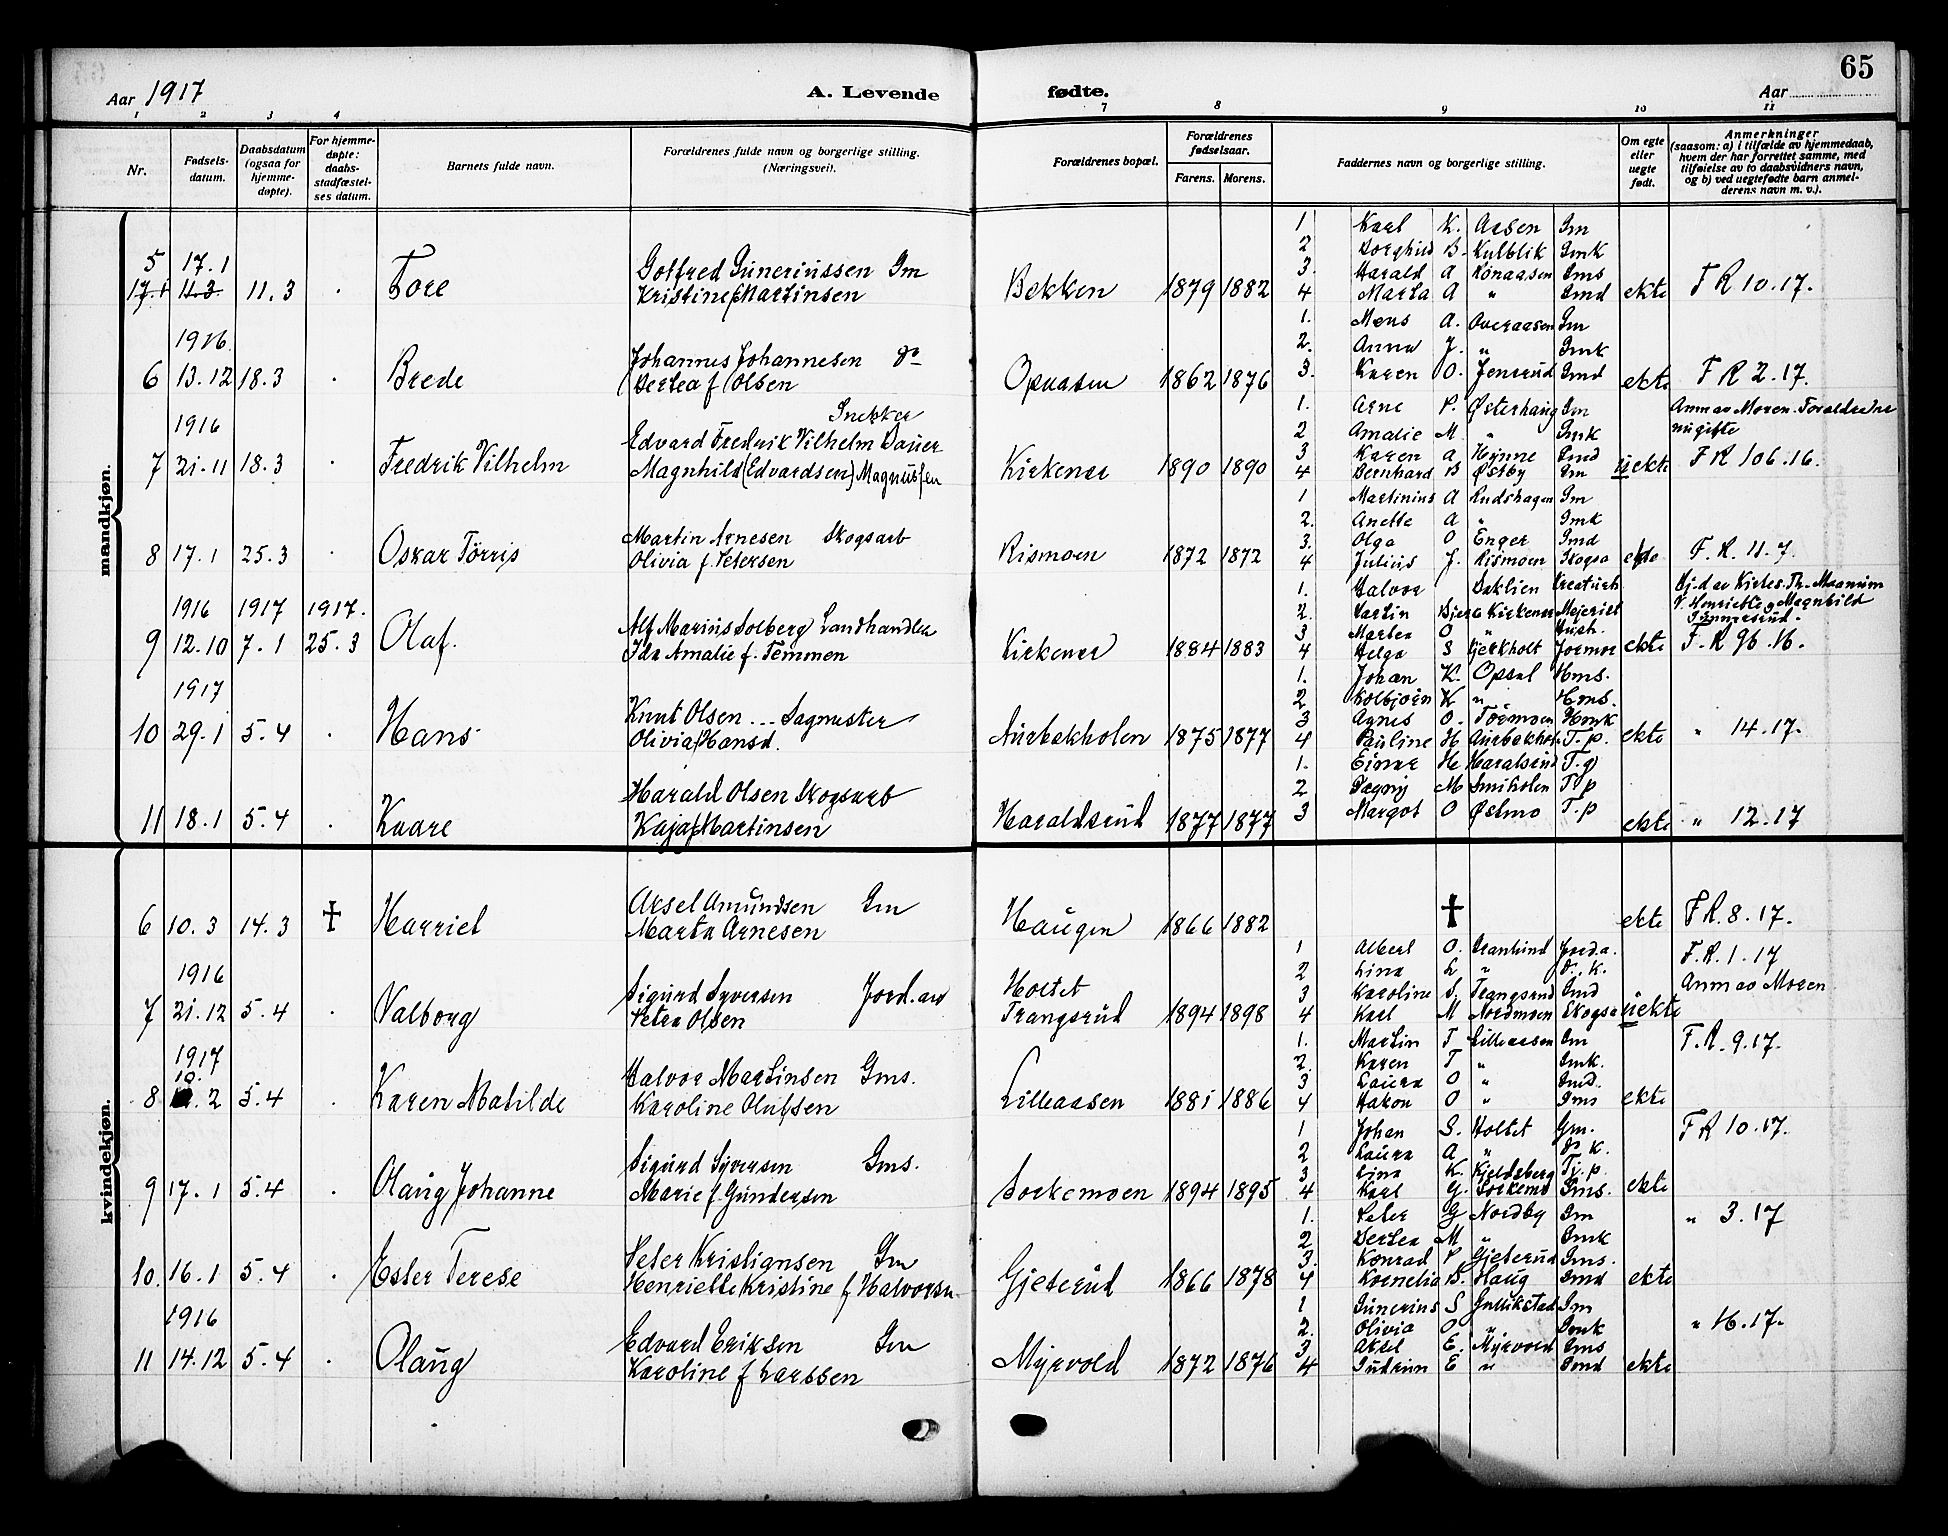 65
Aar 1917
A. Levende fødte.
Aar
1 2 3 4 7 8 9 10 11
Nr.
Fødsels-
datum.
Daabsdatum
(ogsaa for
hjemme-
døpte).
For hjemme-
døpte:
daabs-
stadfæstel-
ses datum.
Barnets fulde navn.
Forældrenes fulde navn og borgerlige stilling.
(Næringsvei).
Forældrenes bopæl.
Forældrenes
fødselsaar.
Farens. Morens.
Faddernes navn og borgerlige stilling.
Om egte
eller
uegte
født.
Anmerkninger
(saasom: a) i tilfælde av hjemmedaab,
hvem der har forrettet samme, med
tilføielse av to daabsvidners navn,
og b) ved uegtefødte barn anmel-
derens navn m. v.).
mandkjøn.
5 17.1
17.1 11.3 11.3 Tore
Gotfred Guneriussen Gm
Kristine f Martinsen
Bekken 1879 1882
1 Karl K. Aasen Gm
2 Borghild B. Kulblik Gmk
3. Harald A Rönaasen Gms
4 Marta A " Gmd
ekte F R 10.17.
1916.
6 13.12 18.3 Brede
Johannes Johannesen do
Bertea f Olsen
Opaasen 1862 1876
1. Mons A. Overaasen Gm
2. Anna J. " Gmk
3. Karen O. Jensrud Gmd
ekte F R 2.17.
1916
7 21.11 18.3 Fredrik Vilhelm
Snekker
Edvard Fredrik Vilhelm Bauer
Magnhild (Edvardsen) Magnussen
Kirkener 1890 1890
1. Arne P. Østerhaug Gm
2 Amalie M. " Gmk
3 Karen A Hynne Gmd
4 Bernhard B Østby Gm
uekte
Anm av Moren. Foreldrene
ugifte
F R 106.16.
8 17.1 25.3 Oskar Törris
Martin Arnesen Skogsarb
Olivia f. Petersen
Rismoen 1872 1872
1 Martinius A Rudshagen Gm
2. Anette A " Gmk
3. Olga O Enger Gmd
4 Julius J. Rismoen Skogsa
ekte F. R. 11.7.
1916 1917 1917.
9 12.10 7.1 25.3 Olaf.
Alf Marius Solberg Landhandler
Ida Amalie f. Temmen
Kirkener 1884 1883
1. Halvor Baklien
2. Martin Bjerke Kirkener Mejerist
3 Martea O " Hush.
4 Helga S Gjerkholt Jormor
ekte
Hj.d av Kirkes. Th. Maanum
V. Henriette og Magnhild
Gunnesrud.
F. R 96.16.
1917
10 29.1 5.4 Hans
Knut Olsen ... Sagmester
Olivia f Hansd.
Aurbekholen 1875 1877
1. Johan K. Opsal Hms.
2 Kolbjörn K " Hms.
3 Agnes O. Törmoen Hmk
4 Pauline H Aurbekhol T.p.
ekte " 14.17.
11 18.1 5.4 Kaare
Harald Olsen Skogsarb
Kaja f Martinsen
Haraldsrud 1877 1877
1. Einar H Haralsrud T.g
2 Dagny M Smiholen T.p
3 Margot O Østmo T.p
ekte " 12.17
kvindekjøn.
6 10.3 14.3 † Harriet
Aksel Amundsen Gm
Marta Arnesen
Haugen 1866 1882
†
ekte F.R. 8.17.
1916
7 21.12 5.4 Valborg
Sigurd Syversen Jord.arb
Petra Olsen
Holtet
Trangsrud 1894 1898
1 Albert O. Branlund Jord.a.
2 Lina L " do. K.
3 Karoline S. Trangsrud Gmd
4 Karl M Nordmoen Skogsa
uekte
F.R. 1.17
Anm av Moren
1917
10.
8 2 5.4 Karen Matilde
Halvor Martinsen Gms.
Karoline Olufsen
Lilleaasen 1881 1886
1. Martin T Lilleaasen Gm
2. Karen T " Gmk.
3 Laura O " Gmd.
4 Hakon O " Gms
ekte F.R. 9.17.
9 17.1 5.4 Olaug Johanne
Sigurd Syversen Gms.
Marie f. Gundersen
Sorkemoen 1894 1895
1 Johan S. Holtet Gm.
2 Laura A " do K.
3 Lina K. Kjeldsberg T.p.
4 Karl G. Sorkemo Gms.
ekte F R 10.17.
10. 16.1 5.4 Ester Terese
Peter Kristiansen Gm
Henriette Kristine f Halvorsen
Gjeterud 1866 1878
1. Peter G Nordby Gm
2 Bertea M " Gmk
3. Konrad P Gjeterud Gms.
4 Kornelia B. Haug Gmd
ekte " 3.17
1916
11 14.12 5.4 Olaug
Edvard Eriksen Gm
Karoline f Larssen
Myrvold 1872 1876
1 Gunerius S Gullikstad Gm
2. Olivia O " Gmk
3 Aksel E. Myrvold Gms
4 Gudrun E " Gmd
ekte " 16.17.